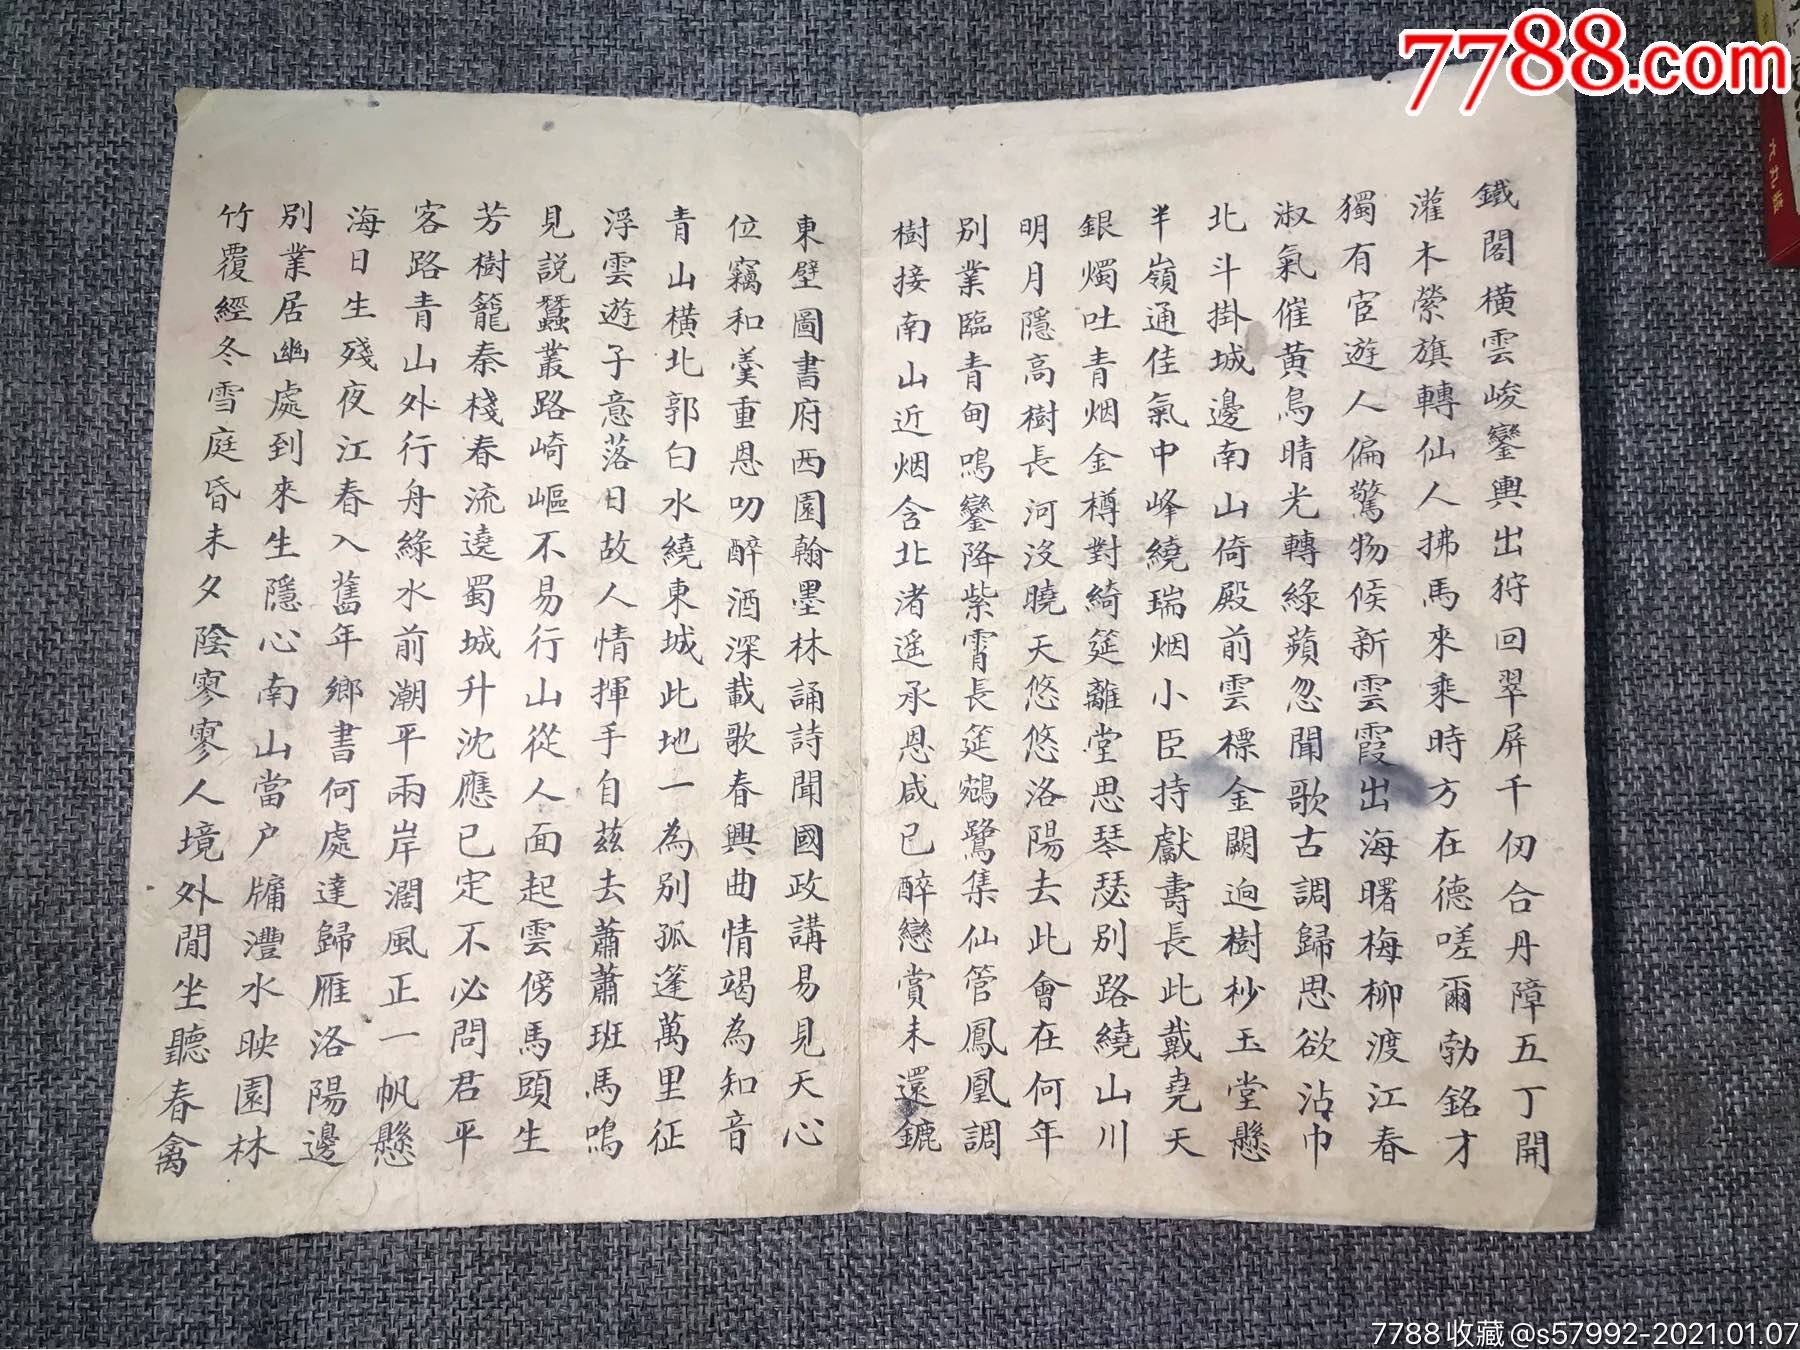 7788.com
鐵閣橫雲峻鑾輿出狩回翠屏千仞合丹障五丁開
灌木縈旗轉仙人拂馬來乘時方在德嗟爾勒銘才
獨有宦遊人偏驚物候新雲霞出海曙梅柳渡江春
淑氣催黃鳥晴光轉綠蘋忽聞歌古調歸思欲沾巾
北斗掛城邊南山倚殿前雲標金闕迥樹杪玉堂懸
半嶺通佳氣中峰繞瑞烟小臣持獻壽長此戴堯天
銀燭吐青烟金樽對綺筵離堂思琴瑟別路繞山川
明月隱高樹長河沒曉天悠悠洛陽去此會在何年
別業臨青甸鳴鑾降紫霄長筵鵷鷺集仙管鳳凰調
樹接南山近烟含北渚遥承恩咸已醉戀賞未還鑣
東壁圖書府西園翰墨林誦詩聞國政講易見天心
位竊和羹重恩叨醉酒深載歌春興曲情竭為知音
青山橫北郭白水繞東城此地一為別孤蓬萬里征
浮雲遊子意落日故人情揮手自茲去蕭蕭班馬鳴
見說蠶叢路崎嶇不易行山從人面起雲傍馬頭生
芳樹籠秦棧春流遶蜀城升沈應已定不必問君平
客路青山外行舟綠水前潮平兩岸濶風正一帆懸
海日生殘夜江春入舊年鄉書何處達歸雁洛陽邊
別業居幽處到來生隱心南山當户牖灃水映園林
竹覆經冬雪庭昏未夕陰寥寥人境外閒坐聽春禽
7788收藏@s57992-2021.01.07